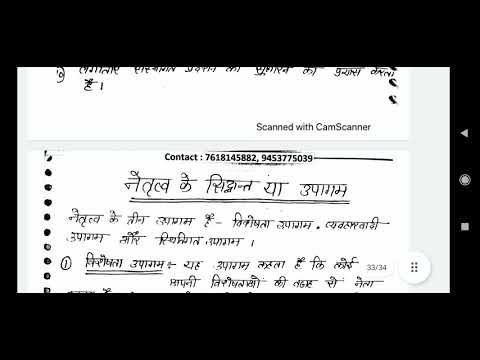 लगातार संस्थागत प्रदर्शन को सुधारने का प्रयास करता
है।
Scanned with CamScanner
Contact : 7618145882, 9453775039
नेतृत्व के सिद्धान्त या उपागम
नेतृत्व के तीन उपागम हैं - विशेषता उपागम, व्यवहारवादी
उपागम और स्थितिगत उपागम ।
① विशेषता उपागम :- यह उपागम कहता है कि कोई
33/34
अपनी विशेषताओं की वजह से नेता